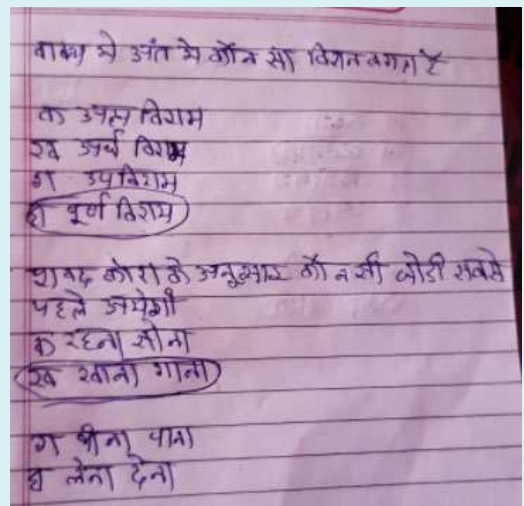 वाक्य मे अंत मे कौन सा विराम लगता है
क अल्प विराम
ख अर्ध विराम
ग उपविराम
घ पूर्ण विराम
शब्द कोश के अनुसार कौन सी जोडी सबसे
पहले आयेगी
क रहना सोना
ख खाना गाना
ग पीना पाना
घ लेना देना